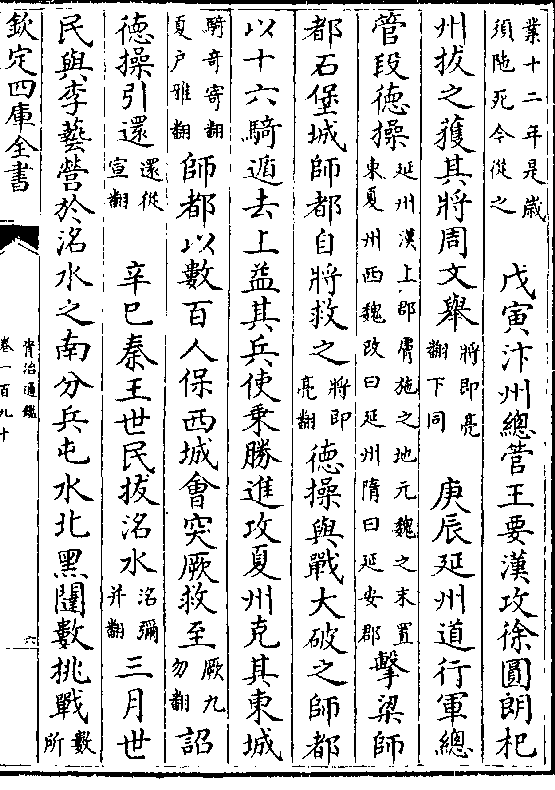 業十二年是歲
須陁死今從之
戊寅汴州總管王要漢攻徐圓朗杞
州拔之獲其將周文舉
將即亮
翻下同
庚辰延州道行軍總
管段德操
延州漢上郡膚施之地元魏之末置
東夏州西魏改曰延州隋曰延安郡
擊梁師
都石堡城師都自將救之
將即
亮翻
德操與戰大破之師都
以十六騎遁去上益其兵使乗勝進攻夏州克其東城
騎奇寄翻
夏户雅翻
師都以數百人保西城會突厥救至
厥九
勿翻
詔
德操引還
還從
宣翻
辛巳秦王世民拔洺水
洺彌
并翻
三月世
民與李藝營於洺水之南分兵屯水北黑闥數挑戰
數
所
欽定四庫全書
資治通鑑
卷一百九十
六